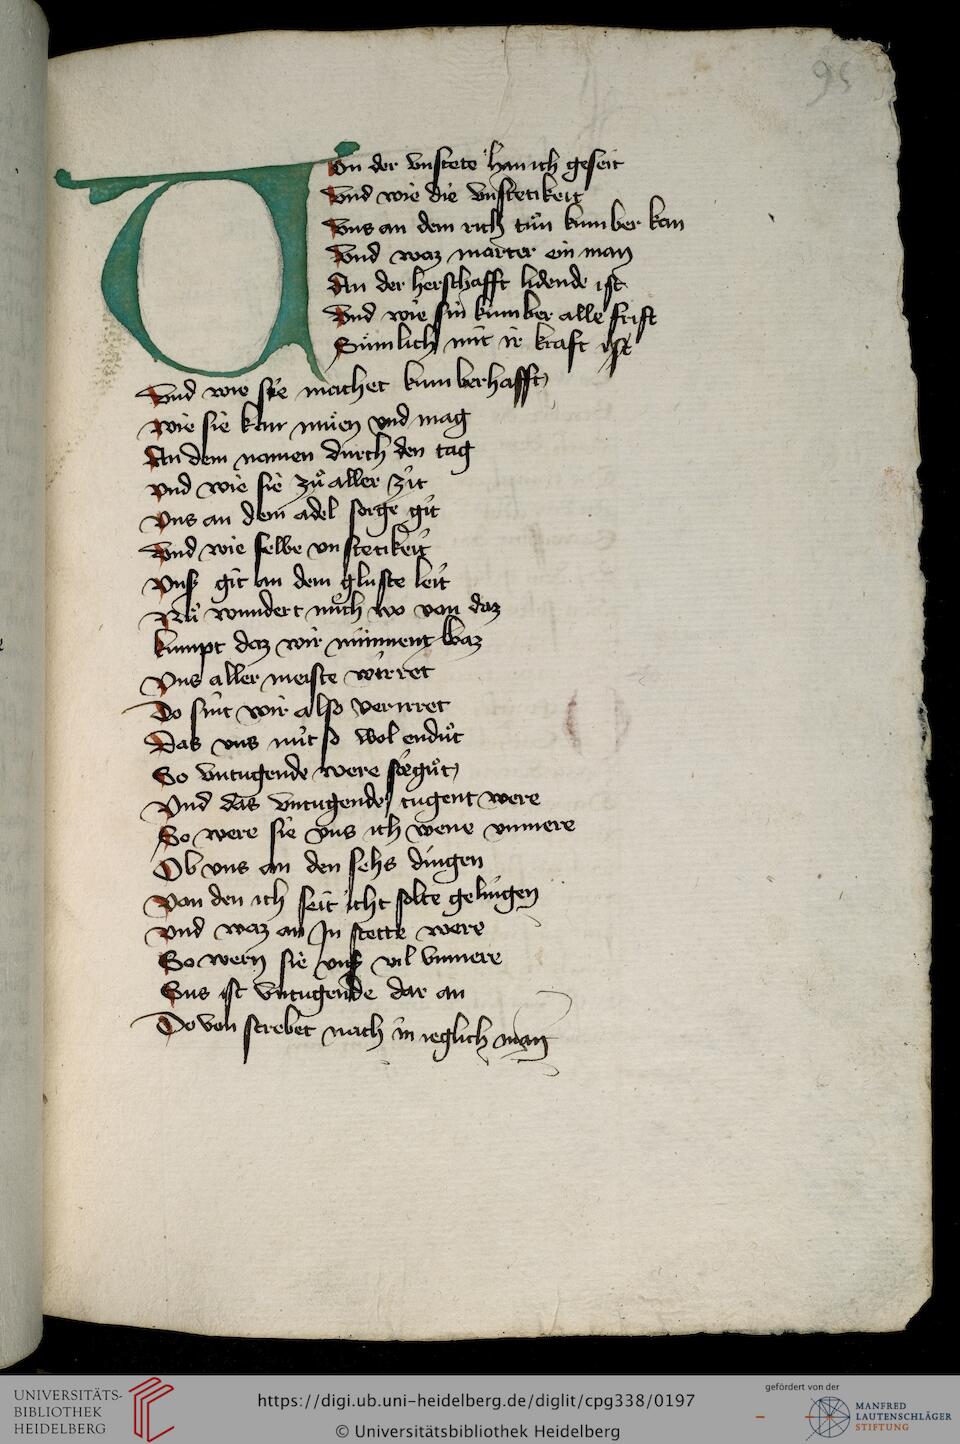 95
Von der vnstete han ich geseit
Vnd wie die vnstetikeit
Vns an dem rich tuͦn kumber kan
Vnd waz marter ein man
An der herschafft lidende ist
Vnd wie sin kumber alle frist
Sümlich mit ir kraft ist
Vnd wie sie machet kumberhafft
wie sie kan muͤen vnd mag
An dem namen durch den tag
vnd wie sie zuͦ aller zit
Vns an dem adel sorge git
Vnd wie selbe vnstetikeit
Vnß git an dem gluste leit
Nu wundert mich wo von daz
kumpt daz wir minnent waz
Vns aller meiste wirret
Do sint wir also verirret
Das vns nit so wol enduͦt
So vntugende were so guͦt
Vnd das vntugende tugent were
So were sie vns ich wene vnmere
Ob vns an den sehs dingen
Von den ich seit icht solte gelingen
Vnd waz an In stette were
So wern sie vnß vil vnmere
Sus ist vntugende dar an
Do von strebet nach in ieglich man
UNIVERSITÄTS-
BIBLIOTHEK
HEIDELBERG
https://digi.ub.uni-heidelberg.de/diglit/cpg338/0197
© Universitätsbibliothek Heidelberg
gefördert von der
MANFRED
LAUTENSCHLÄGER
STIFTUNG